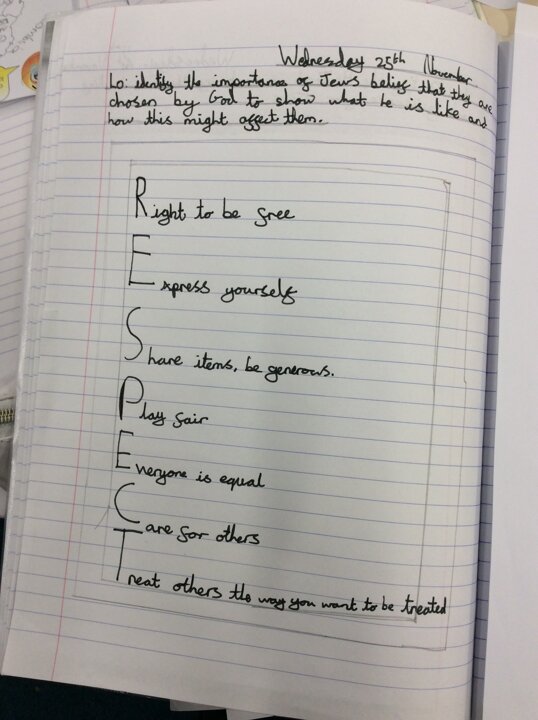 Wednesday 25th November.
Lo: identify the importance of Jews belief that they are
chosen by God to show what he is like and
how this might affect them.
Right to be free
Express yourself
Share items, be generous.
Play fair
Everyone is equal
Care for others
Treat others the way you want to be treated